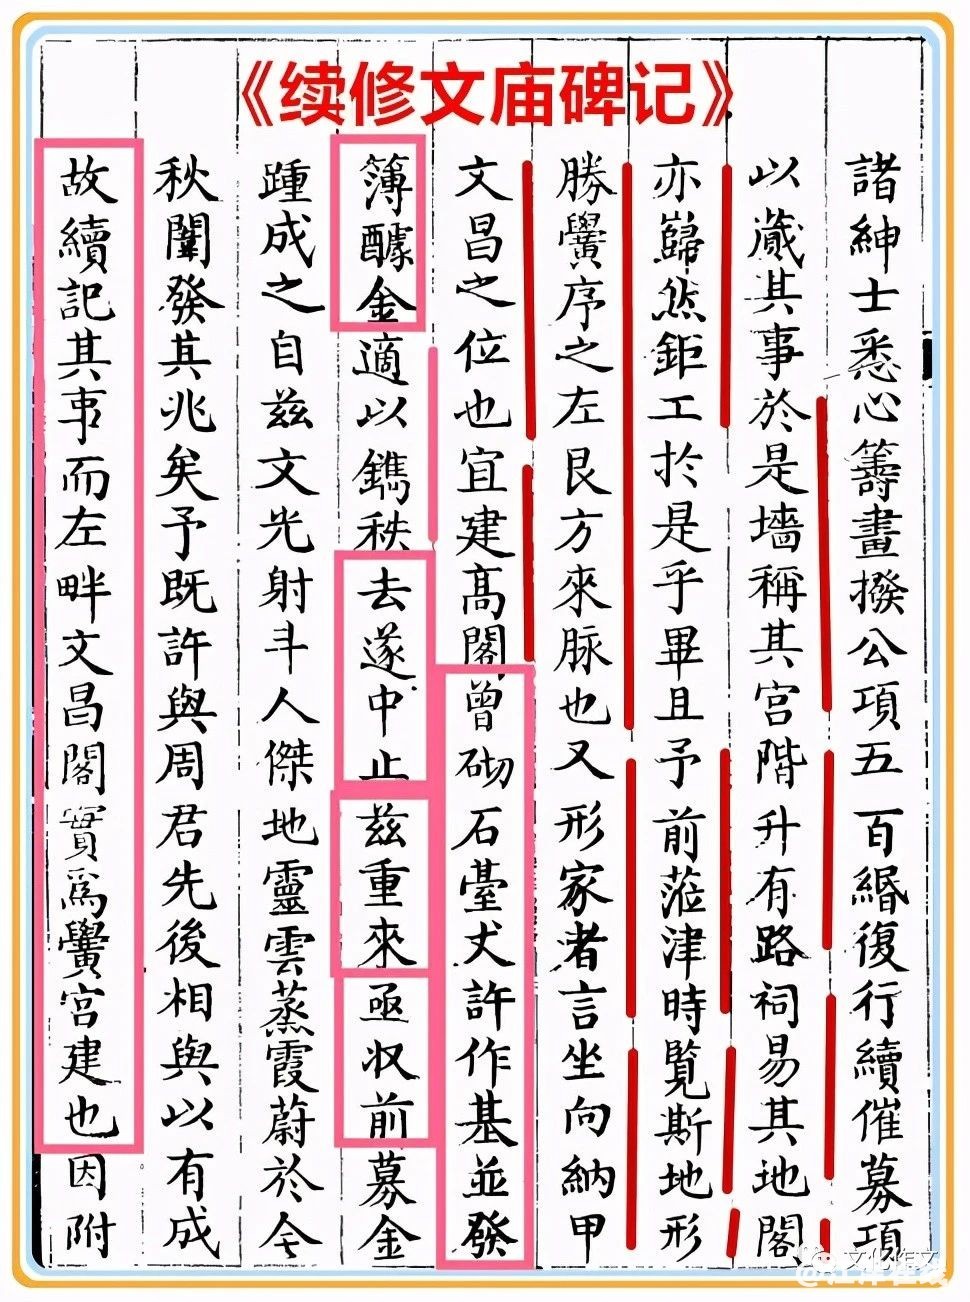 《续修文庙碑记》
諸紳士悉心籌畫撥公項五百緡復行續催募項
以蕆其事於是墻稱其宫階升有路祠易其地閣
亦巋然鉅工於是乎畢且予前蒞津時覧斯地形
勝黌序之左艮方來脉也又形家者言坐向納甲
文昌之位也宜建髙閣曾砌石臺犬許作基並發
簿醵金適以鐫秩去遂中止兹重來亟収前募金
踵成之自兹文光射斗人傑地靈雲蒸霞蔚於今
秋闈發其兆矣予既許與周君先後相與以有成
故續記其事而左畔文昌閣實爲黌宫建也因附
文化作文